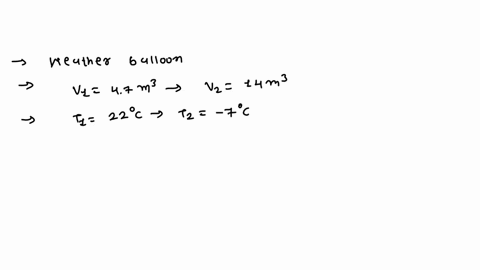 → Weather balloon
→ V₁ = 4.7 m³ → V₂ = 14 m³
→ T₁ = 22°C → T₂ = -7°C